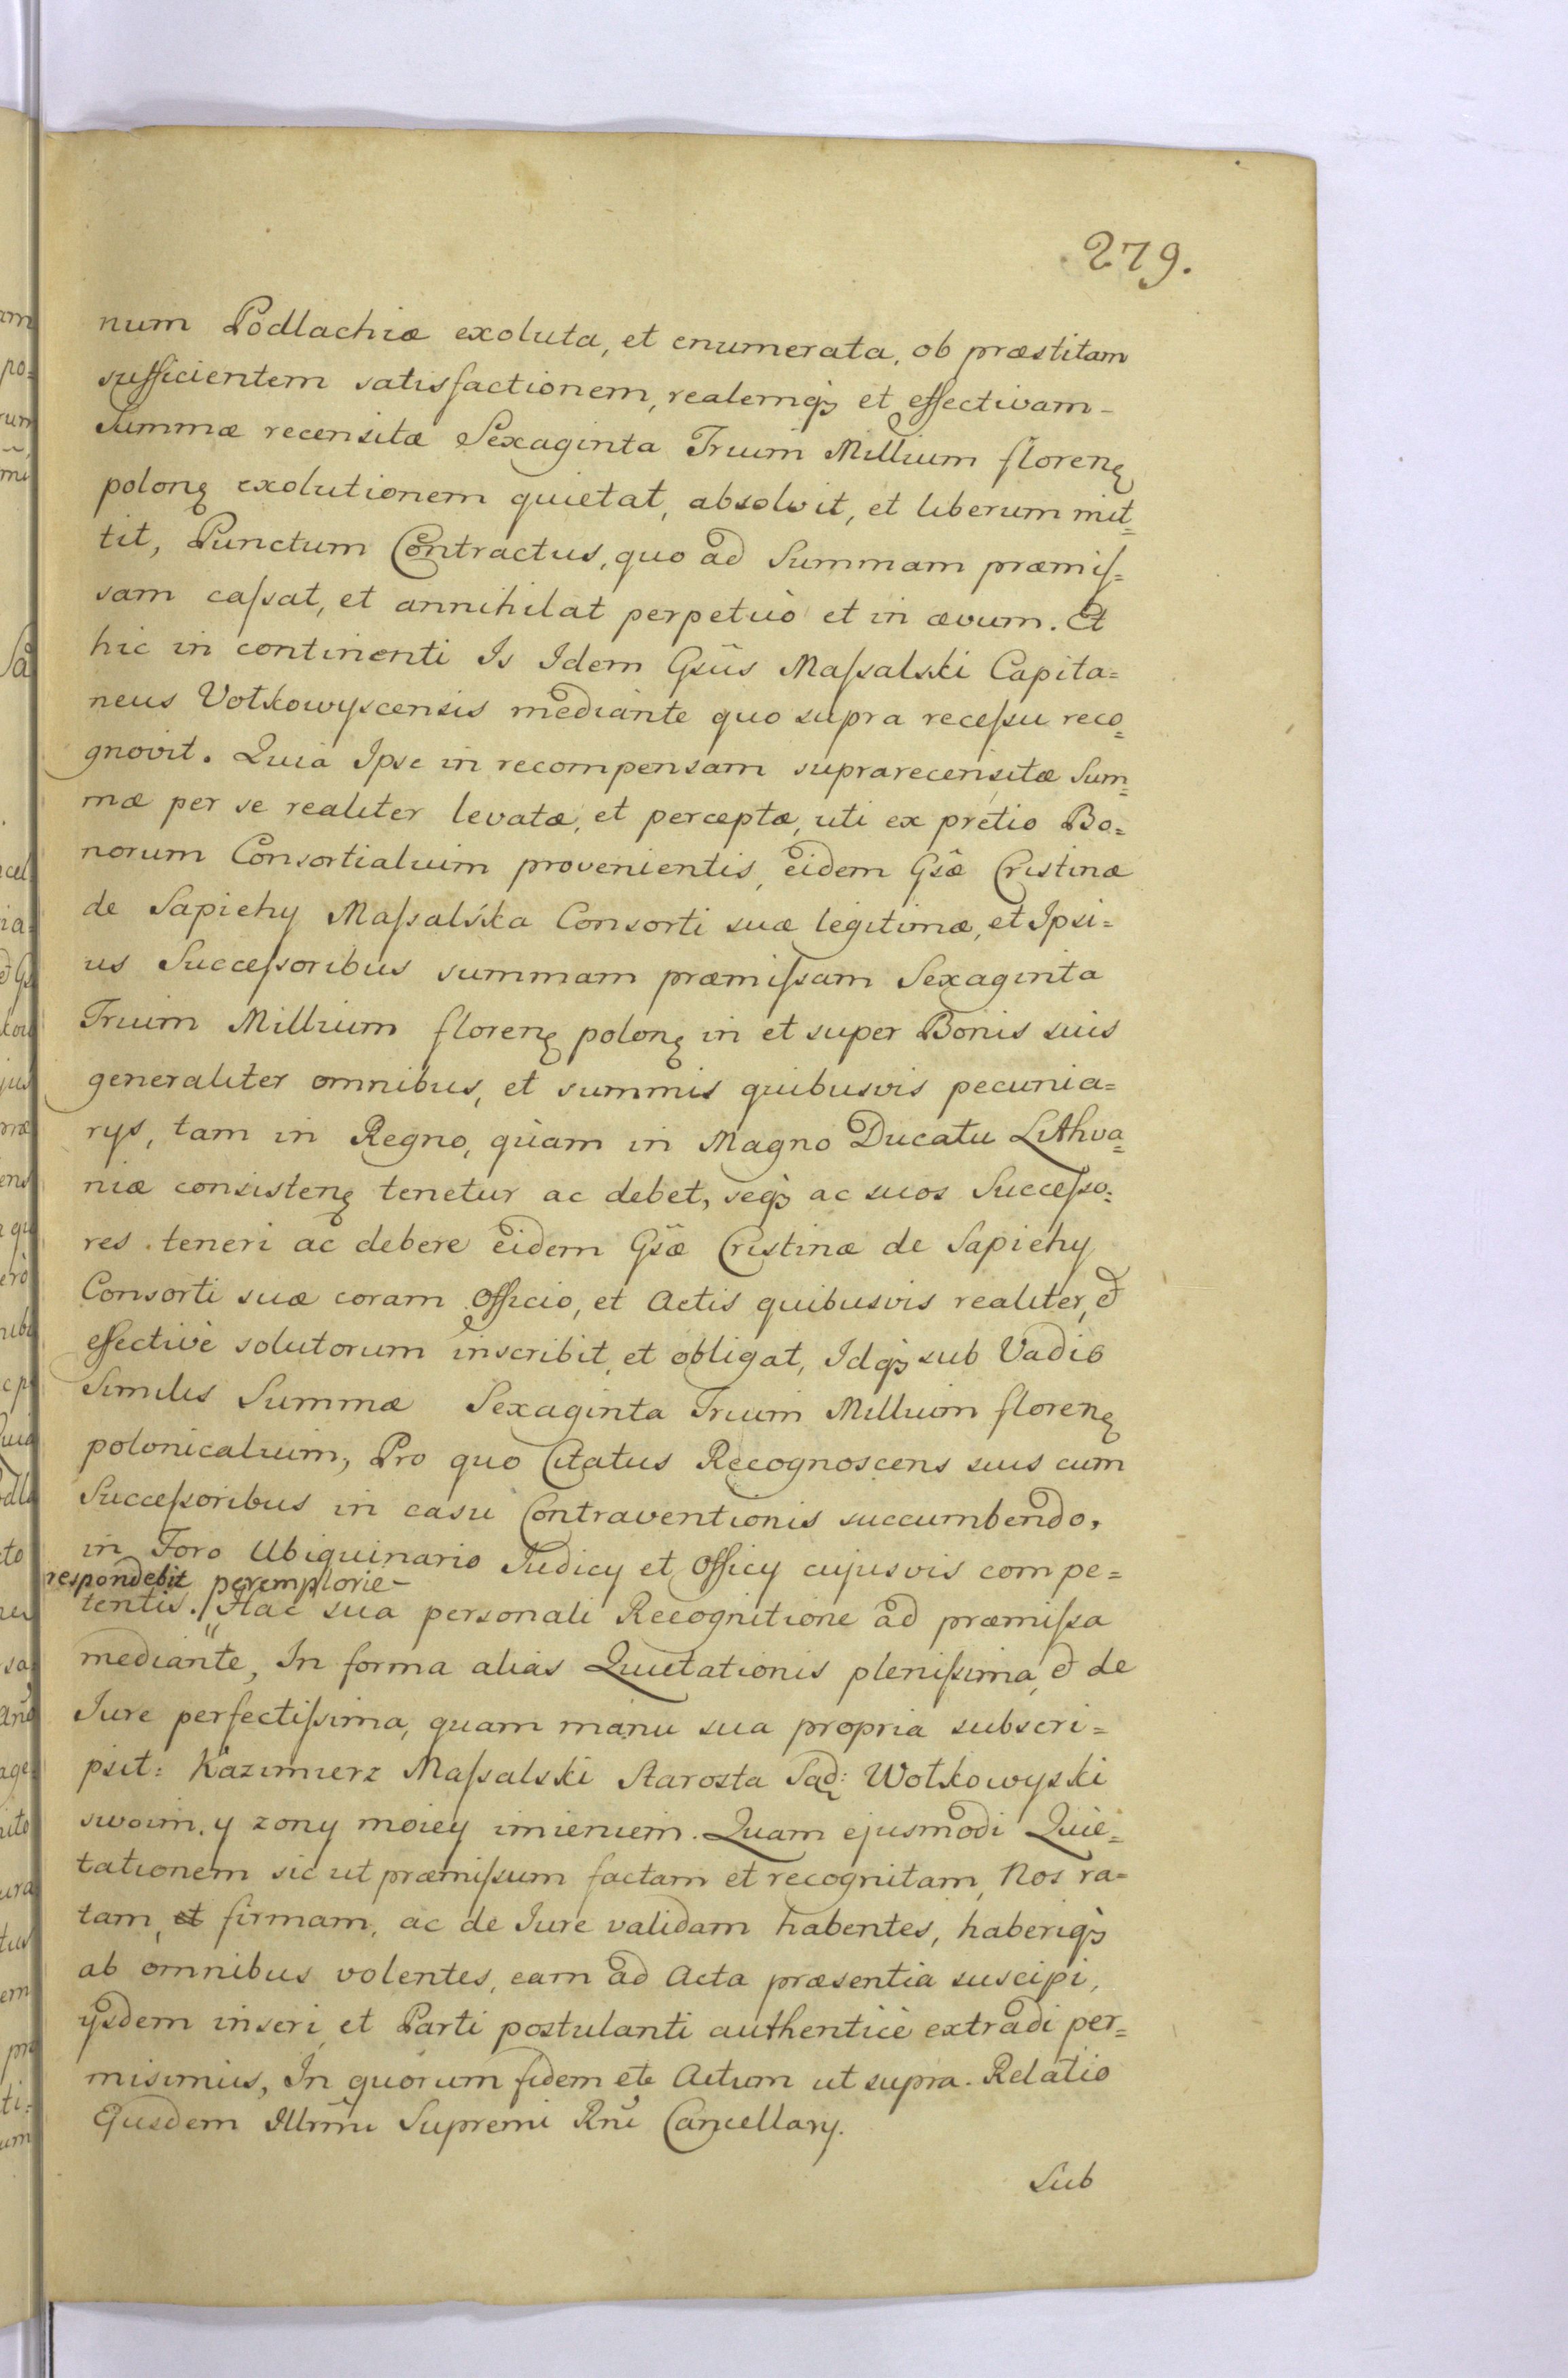 279.
num Podlachiæ exoluta, et enumerata, ob præstitam
sufficientem satisfactionem, realemqꝫ et effectivam-
Summæ recensitæ Sexaginta Trium Millium florenꝫ
polonꝫ exolutionem quietat, absolvit, et liberum mit=
tit, Punctum Contractus, quo ad Summam præmiſ=
sam caſsat, et annihilat perpetuò et in ævum. Et
hic in continenti Is Idem Gsũs Maſsalski Capita=
neus Volkowyscensis mediante quo supra receſsu reco=
gnovit. Quia Ipse in recompensam suprarecensitæ Sum=
mæ per se realiter levatæ, et perceptæ, uti ex pretio Bo=
norum Consortialium provenientis, eidem Gsæ Cristinæ
de Sapiehy Maſsalska Consorti suæ legitimæ, et Ipsi=
us Succeſsoribus summam præmiſsam Sexaginta
Trium Millium florenꝫ polonꝫ in et super Bonis suis
generaliter omnibus, et summis quibusvis pecunia=
rys, tam in Regno, quàm in Magno Ducatu Lithva=
niæ consistenꝫ tenetur ac debet, seqꝫ ac suos Succeſso=
res teneri ac debere eidem Gsæ Cristinæ de Sapiehy
Consorti suæ coram Officio, et Actis quibusvis realiter, et
effectivè solutorum inscribit, et obligat, Idqꝫ sub Vadio
Similis Summæ Sexaginta Trium Millium florenꝫ
polonicalium, Pro quo Citatus Recognoscens suis cum
Succeſsoribus in casu Contraventionis succumbendo,
in Foro Ubiquinario Iudicy et Officy cujusvis compe=
respondebit peremptorie-
tentis./ Hac sua personali Recognitione ad præmiſsa
mediante, In forma alias Quietationis pleniſsima, et de
Iure perfectiſsima, quam manu sua propria subscri=
psit: Kazimierz Maſsalski Starosta Sąd: Wołkowyski
swoim, y zony moiey imieniem. Quam ejusmodi Quie=
tationem sic ut præmiſsum factam et recognitam, Nos ra=
tam, et firmam, ac de Iure validam habentes, haberiqꝫ
ab omnibus volentes, eam ad Acta præsentia suscipi,
ysdem inseri, et Parti postulanti authenticè extradi per=
misimus, In quorum fidem etc Actum ut supra. Relatio
Ejusdem Illmi Supremi Rni Cancellary.
Sub